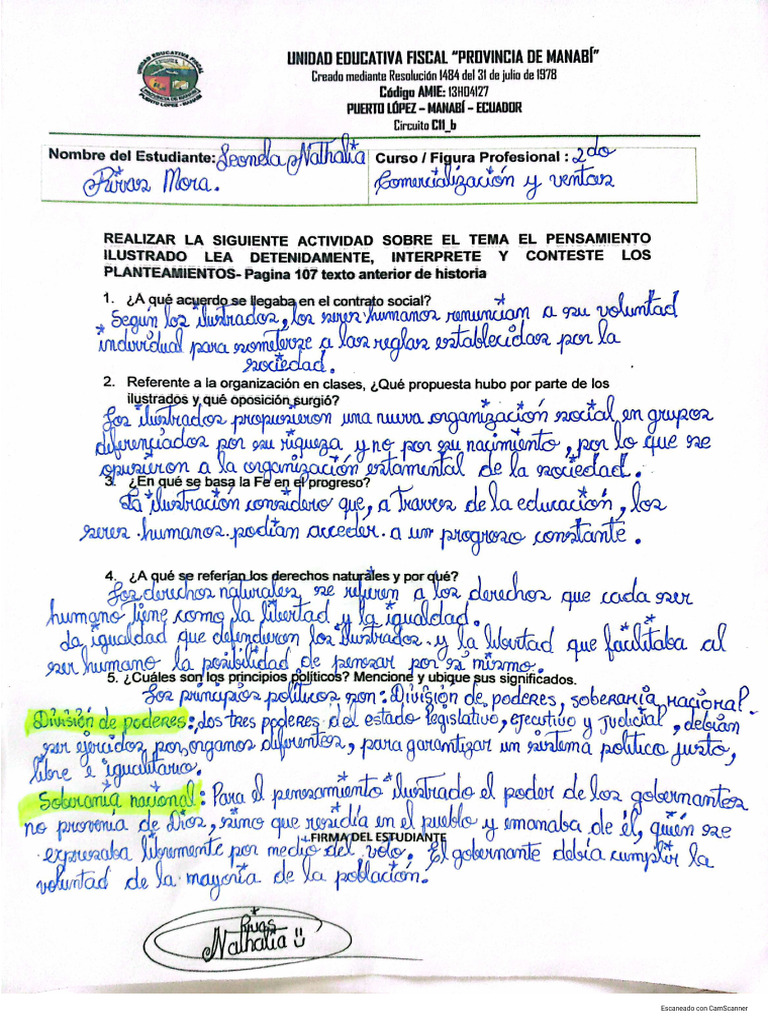 UNIDAD EDUCATIVA FISCAL “PROVINCIA DE MANABÍ”
Creado mediante Resolución 1484 del 31 de julio de 1978
Código AMIE: 13H04127
PUERTO LÓPEZ – MANABÍ – ECUADOR
Circuito C11_b
UNIDAD EDUCATIVA FISCAL
PROVINCIA DE MANABI
PUERTO LÓPEZ - MANABI
Nombre del Estudiante: Leonela Nathalia
Rivas Mora.
Curso / Figura Profesional : 2do
Comercialización y ventas
REALIZAR LA SIGUIENTE ACTIVIDAD SOBRE EL TEMA EL PENSAMIENTO
ILUSTRADO LEA DETENIDAMENTE, INTERPRETE Y CONTESTE LOS
PLANTEAMIENTOS- Pagina 107 texto anterior de historia
1. ¿A qué acuerdo se llegaba en el contrato social?
Según los ilustrados, los seres humanos renuncian a su voluntad
individual para someterse a las reglas establecidas por la
sociedad.
2. Referente a la organización en clases, ¿Qué propuesta hubo por parte de los
ilustrados y qué oposición surgió?
Los ilustrados propusieron una nueva organización social, en grupos
diferenciados por su riqueza y no por su nacimiento, por lo que se
opusieron a la organización estamental de la sociedad.
3. ¿En qué se basa la Fe en el progreso?
La ilustración considero que, a travez de la educación, los
seres humanos podían acceder a un progreso constante.
4. ¿A qué se referían los derechos naturales y por qué?
Los derechos naturales, se refieren a los derechos que cada ser
humano tiene como la libertad y la igualdad.
La igualdad que defendieron los ilustrados y la libertad que facilitaba al
ser humano la posibilidad de pensar por sí mismo.
5. ¿Cuáles son los principios políticos? Mencione y ubique sus significados.
Los principios políticos son: División de poderes, soberanía nacional.
División de poderes: Los tres poderes del estado legislativo, ejecutivo y judicial, debían
ser ejercidos por organos diferentes, para garantizar un sistema político justo,
libre e igualitario.
Soberanía nacional: Para el pensamiento ilustrado el poder de los gobernantes
no provenía de Dios, sino que residía en el pueblo y emanaba de él, quién se
FIRMA DEL ESTUDIANTE
expresaba libremente por medio del voto. El gobernante debía cumplir la
voluntad de la mayoría de la población.
Rivas
Nathalia
Escaneado con CamScanner